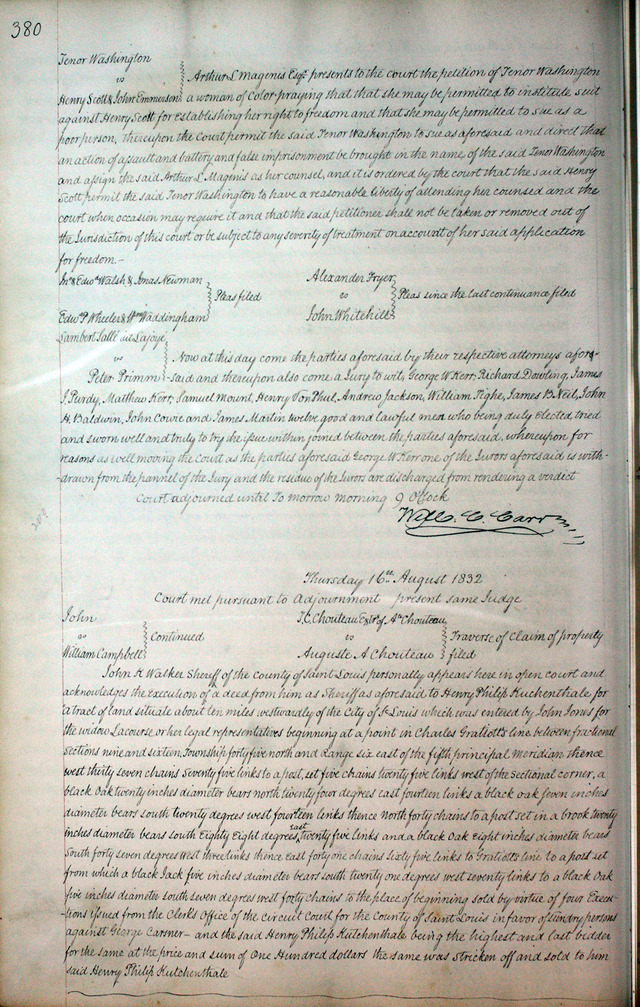 380
Tenor Washington
vs Arthur L Magenis Esqr. presents to the court the petition of Tenor Washington
Henry Scott & John Emmerson a woman of Color praying that that she may be permitted to institute suit
against Henry Scott for establishing her right to freedom and that she may be permitted to sue as a
poor person, thereupon the Court permit the said Tenor Washington to sue as aforesaid and direct that
an action of assault and battery and false imprisonment be brought in the name of the said Tenor Washington
and assign the said Arthur L. Magenis as her counsel, and it is ordered by the court that the said Henry
Scott permit the said Tenor Washington to have a reasonable liberty of attending her counsel and the
court when occasion may require it and that the said petitioner shall not be taken or removed out of
the Jurisdiction of this court or be subject to any severity of treatment on account of her said application
for freedom.—
Jno. & Edwd. Walsh & Jonas Newman Alexander Fryer
Pleas filed vs Pleas since the last continuance filed
Edwd P Wheeler & Wm Waddingham John Whitehill
Lambert Salle dit Lajoye
vs Now at this day come the parties aforesaid by their respective attorneys afore-
Peter Primm said and thereupon also come a Jury to wit, George W Kerr, Richard Dowling, James
J. Purdy, Matthew Kerr, Samuel Mount, Henry Von Phul, Andrew Jackson, William Tighe, James B Neil, John
H. Baldwin, John Cowie and James Martin twelve good and lawful men who being duly Elected tried
and sworn well and truly to try the issue within joined between the parties aforesaid, whereupon for
reasons as well moving the Court as the parties aforesaid George W Kerr one of the Jurors aforesaid is with-
-drawn from the pannel of the Jury and the residue of the Jurors are discharged from rendering a verdict
Court adjourned until To morrow morning 9 O'Clock
Will. C. Carr
Thursday 16th August 1832
Court met pursuant to Adjournment present same Judge
John J. C. Chouteau Extr. of Ate Chouteau
vs Continued vs Traverse of Claim of property
William Campbell Auguste A Chouteau filed
John K Walker Sheriff of the County of Saint Louis personally appears here in open court and
acknowledges the Execution of a deed from him as Sheriff as aforesaid to Henry Philip Kuchenthale for
a tract of land situate about ten miles westwardly of the City of St Louis which was entered by John Jones for
the widow Lacourse or her legal representatives beginning at a point in Charles Gratiott's line between fractional
Sections nine and sixteen, Township forty five north and Range six east of the fifth principal Meridian thence
west thirty seven chains Seventy five links to a post, set five chains twenty five links west of the Sectional corner, a
black Oak twenty inches diameter bears north twenty four degrees east fourteen links a black oak seven inches
diameter bears south twenty degrees west fourteen links thence North forty chains to a post set in a brook twenty
inches diameter bears south Eighty Eight degrees east twenty five links and a black Oak Eight inches diameter bears
South forty seven degrees west three links thence east forty one chains Sixty five links to Gratiotts line to a post set
from which a black Jack five inches diameter bears south twenty one degrees west seventy links to a black Oak
five inches diameter south seven degrees west forty chains to the place of beginning sold by virtue of four Execu-
-tions issued from the Clerks Office of the Circuit Court for the County of Saint Louis in favor of sundry persons
against George Carsner — and the said Henry Philip Kutchenthale being the highest and last bidder
for the same at the price and sum of One Hundred dollars the same was stricken off and sold to him
said Henry Philip Kutchenthale